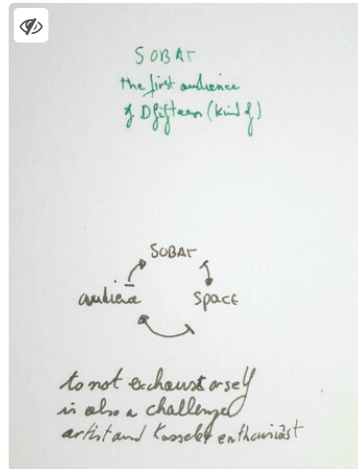 SOBAT
the first audience
of Dfifteen (kind of)
SOBAT
audience
SPACE
to not exhaust orself
is also a challenge
artist and Kasseler enthusiast